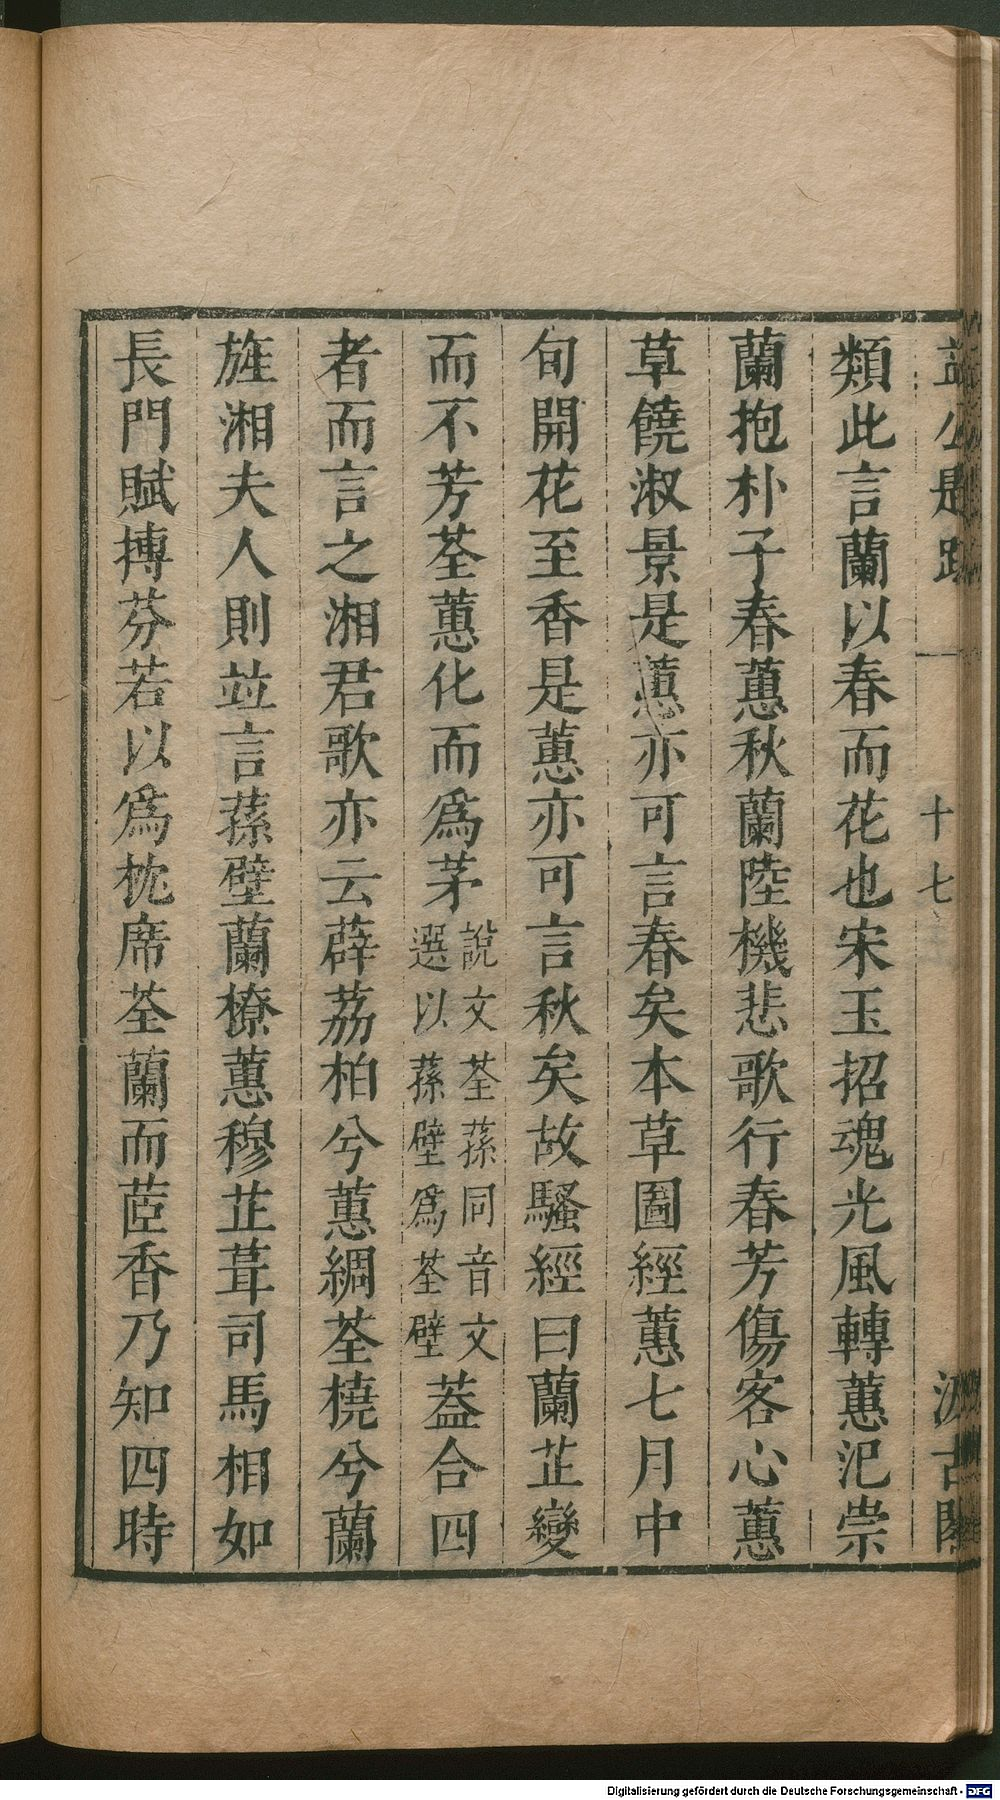 益公題跋 一 十七 汲古閣
類此言蘭以春而花也宋玉招魂光風轉蕙汜崇
蘭抱朴子春蕙秋蘭陸機悲歌行春芳傷客心蕙
草饒淑景是蕙亦可言春矣本草圖經蕙七月中
旬開花至香是蕙亦可言秋矣故騷經曰蘭芷變
而不芳荃蕙化而為茅說文荃蓀同音文選以蓀壁為荃壁葢合四
者而言之湘君歌亦云薜荔柏兮蕙綢荃橈兮蘭
旌湘夫人則並言蓀壁蘭橑蕙穆芷葺司馬相如
長門賦摶芬若以為枕席荃蘭而茝香乃知四時
Digitalisierung gefördert durch die Deutsche Forschungsgemeinschaft - DFG